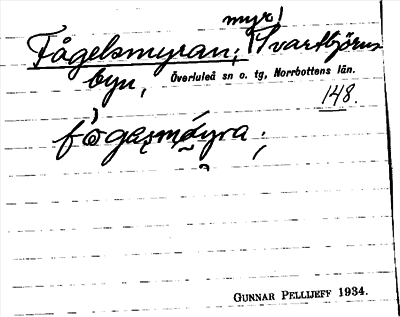 myr,
Fågelsmyran; Svartbjörns
byn, Överluleå sn o. tg, Norrbottens län.
148.
GUNNAR PELLIJEFF 1934.